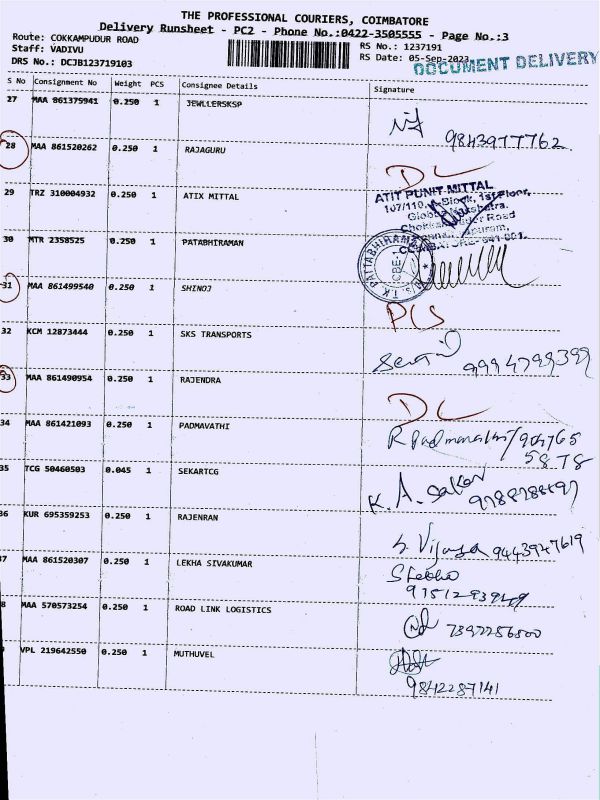 THE PROFESSIONAL COURIERS, COIMBATORE
Delivery Runsheet - PC2 - Phone No.:0422-3505555 - Page No.:3
Route: COKKAMPUDUR ROAD
Staff: VADIVU
DRS No.: DCJB123719103
RS No.: 1237191
RS Date: 05-Sep-2023
DOCUMENT DELIVERY
S No Consignment No Weight PCS Consignee Details Signature
27 MAA 861375941 0.250 1 JEWLLERSKSP
9843977762
28 MAA 861520262 0.250 1 RAJAGURU
DL
29 TRZ 310004932 0.250 1 ATIX MITTAL
ATIT PUNIT MITTAL
107/110, Block, 1st Floor,
Road
30 MTR 2358525 0.250 1 PATABHIRAMAN
31 MAA 861499540 0.250 1 SHINOJ
P/S
32 KCM 12873444 0.250 1 SKS TRANSPORTS
33 MAA 861490954 0.250 1 RAJENDRA
DL
34 MAA 861421093 0.250 1 PADMAVATHI
5878
35 TCG 50460503 0.045 1 SEKARTCG
K. A. Sekar
36 KUR 695359253 0.250 1 RAJENRAN
9443947619
37 MAA 861520307 0.250 1 LEKHA SIVAKUMAR
8 MAA 570573254 0.250 1 ROAD LINK LOGISTICS
7397256800
VPL 219642550 0.250 1 MUTHUVEL
9842287141